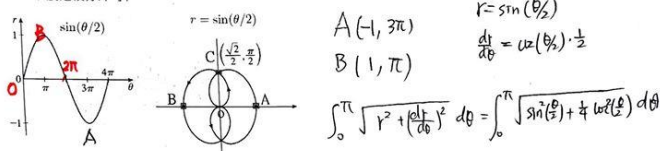 r
sin(θ/2)
1
B
2π
O
0
π
3π
4π
θ
-1
A
r = sin(θ/2)
C (√2/2, π/2)
B
A
0
A(-1, 3π)
B(1, π)
r = sin(θ/2)
dr/dθ = cos(θ/2)·1/2
∫₀^π √(r² + (dr/dθ)²) dθ = ∫₀^π √(sin²(θ/2) + 1/4 cos²(θ/2)) dθ